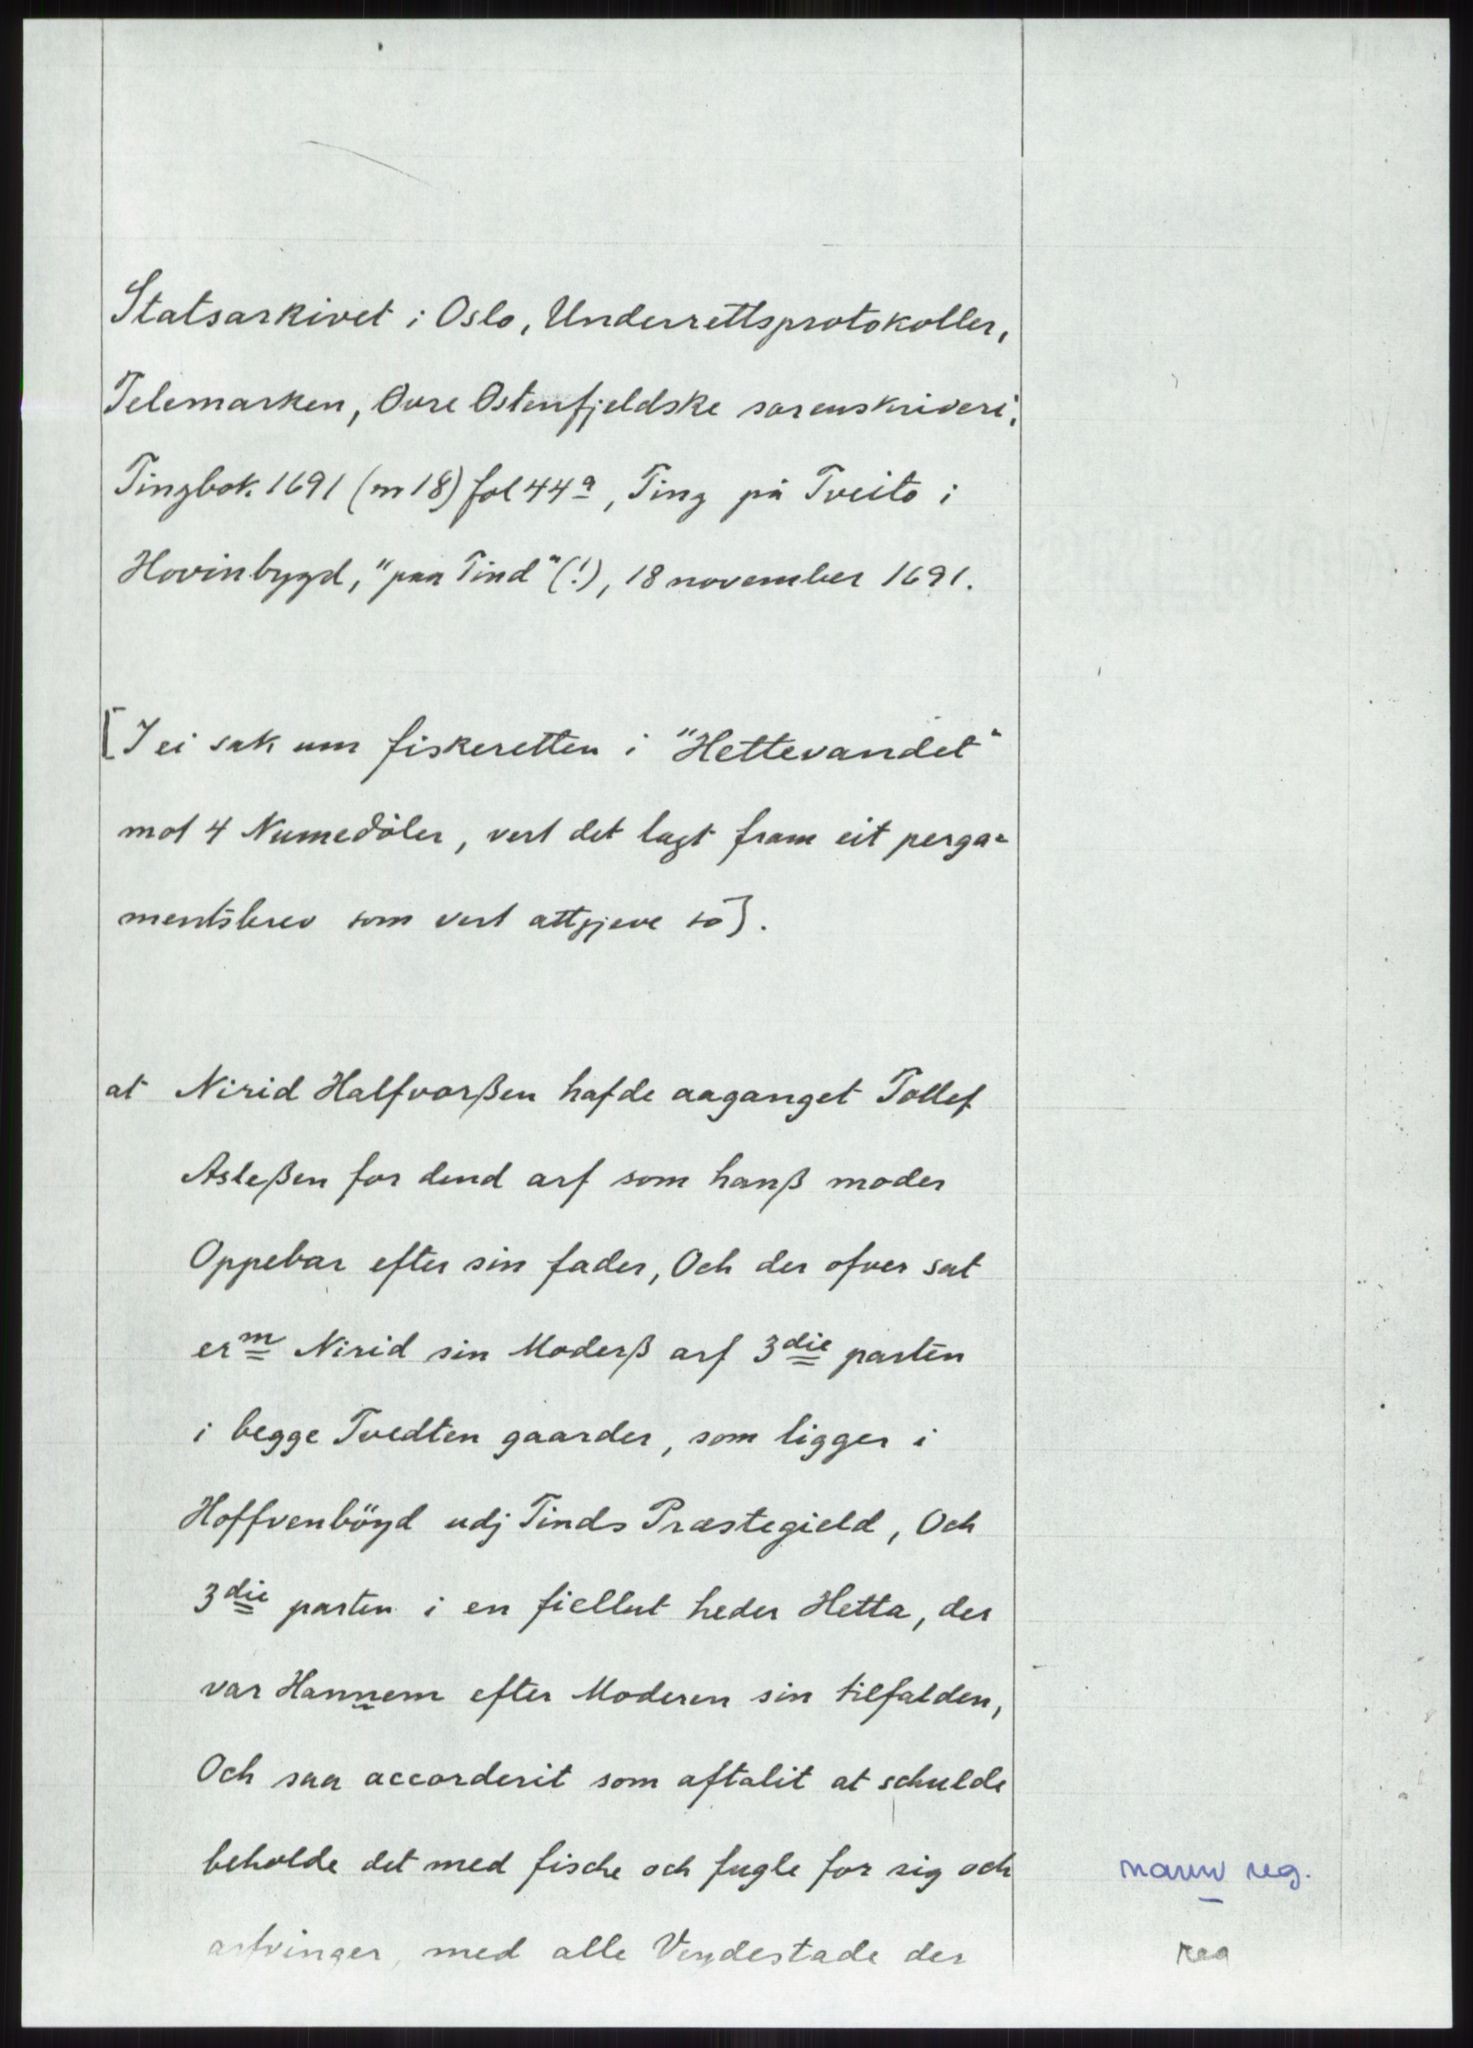 Statsarkivet i Oslo, Underrettsprotokoller,
Telemarken, Ovre Østenfjeldske sorenskriveri.
Tingbok 1691 (nr 18) fol 44a, Ting på Tveito i
Hovinbygd, "paa Tind" (!), 18 november 1691.
[I ei sak um fiskeretten i "Hettevandet"
mot 4 Numedøler, vert det lagt fram eit perga=
mentsbrev som vert attgjeve so].
at Nirid Halfvorßen hafde aaganget Tollef
Asleßen for dend arf som hanß moder
Oppebar efter sin fader, Och der ofver sat
erm Nirid sin Moderß arf 3die parten
i begge Tvedten gaarder, som ligger i
Hoffvenböyd udj Tinds Præstegield, Och
3die parten i en fiellut heder Hetta, der
var Hannem efter Moderen sin tilfalden,
Och saa accorderit som aftalit at schulde
beholde det med fische och fugle for sig och
arfvinger, med alle Veydestade der
navn reg.
reg